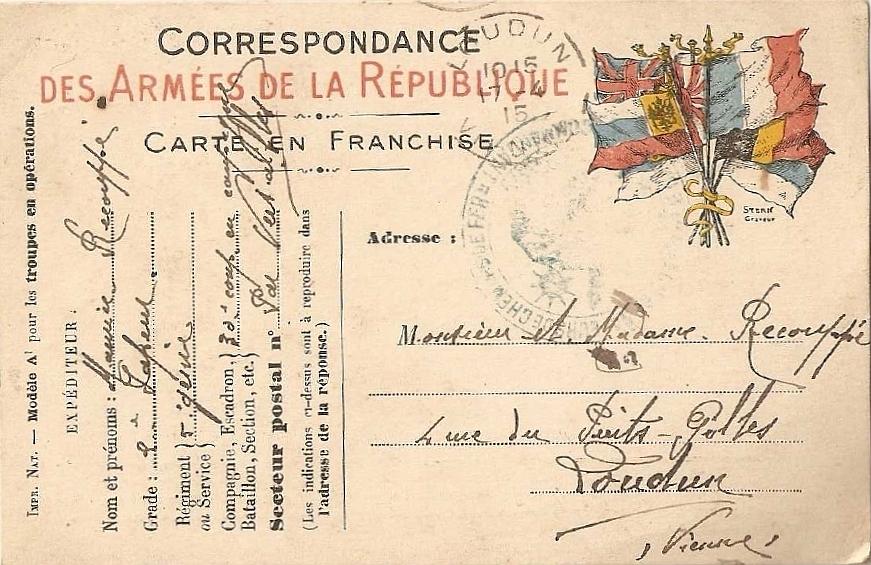 CORRESPONDANCE
DES ARMÉES DE LA RÉPUBLIQUE
CARTE EN FRANCHISE
LOUDUN
10 15
17 - 4
15
STERN
Graveur
Impr. Nat. — Modèle A¹ pour les troupes en opérations.
EXPÉDITEUR :
Nom et prénoms : Maurice Recouppé
Grade : 2e Sapeur
Régiment ou Service } 5e génie
Compagnie, Escadron, Bataillon, Section, etc. } 30e comp en campagne
Secteur postal n° Par Versailles
(Les indications ci-dessus sont à reproduire dans
l'adresse de la réponse.)
Adresse :
Monsieur et Madame Recouppé
4 rue du Puits-
Loudun
(Vienne)